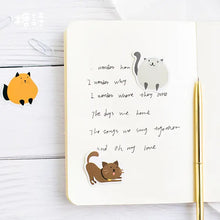 I wonder how
I wonder why
I wonder where they are
The days we have
The songs we sang together
and oh my love